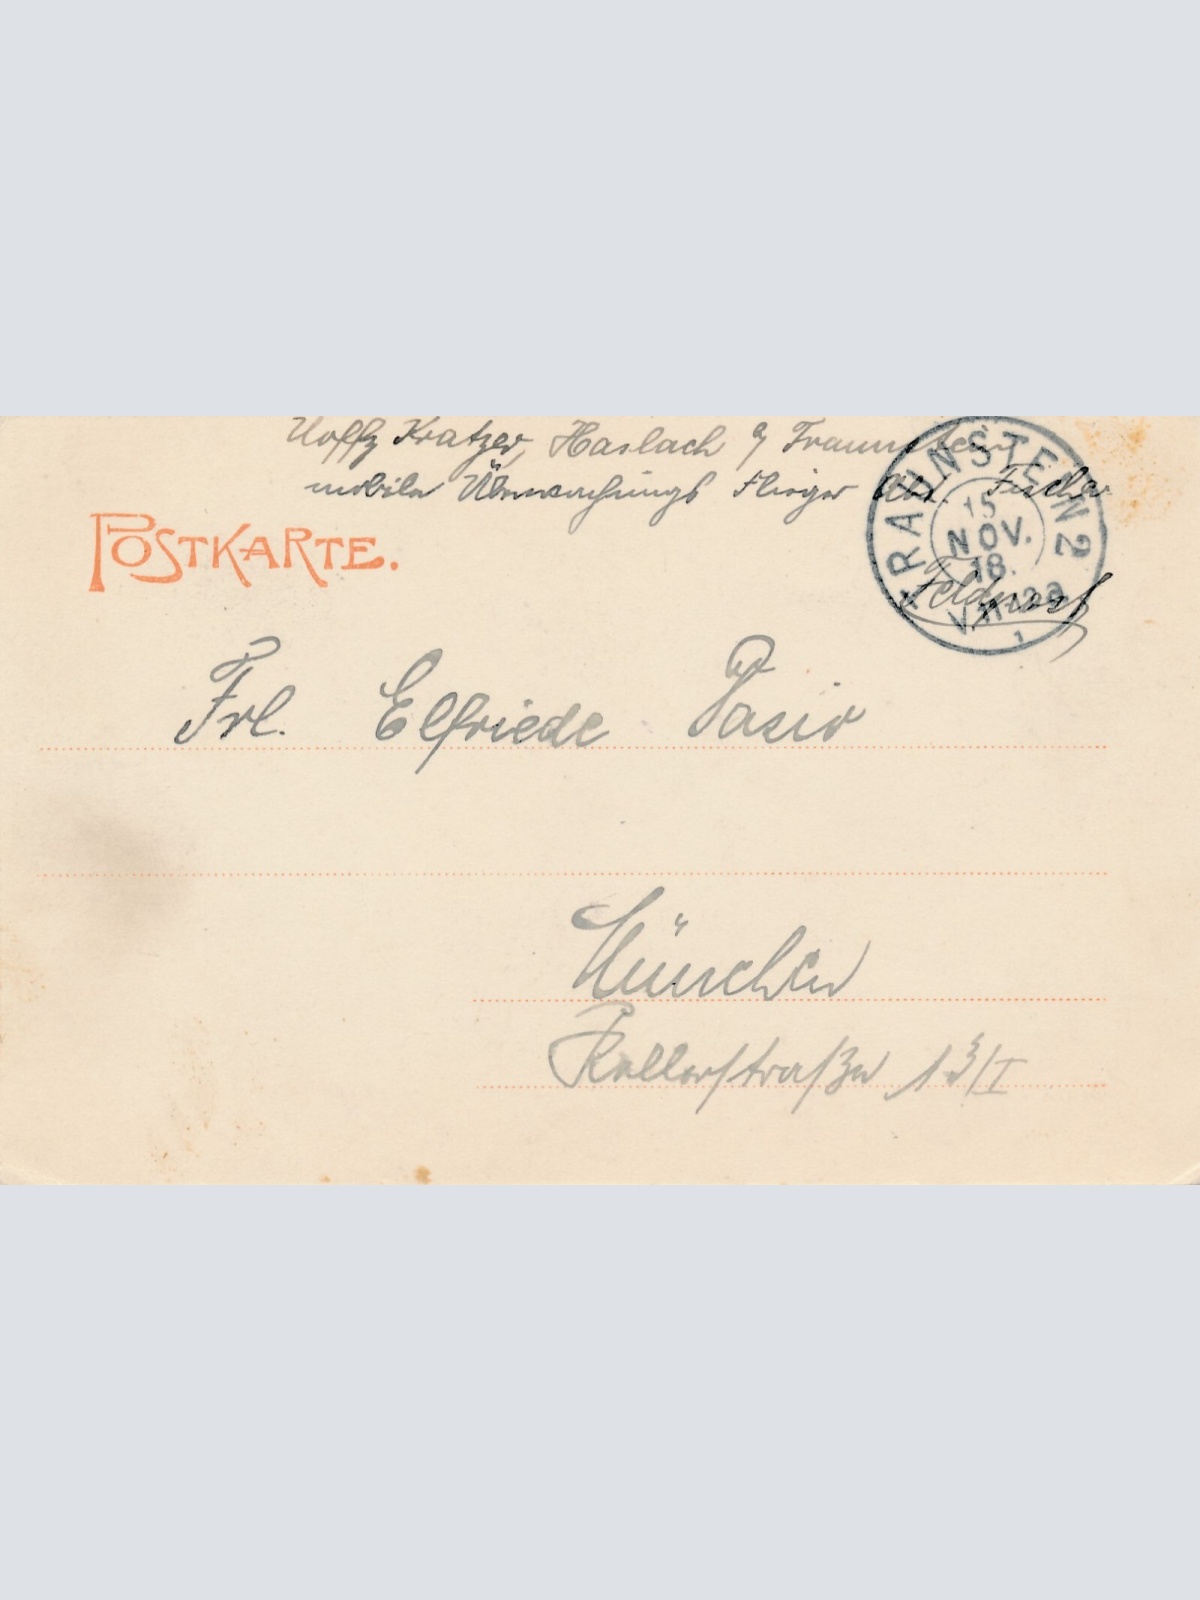 Uoffz Kratzer, Haslach b/ Traunstein
mobile Überwachungs Flieger Abt. Fischer
POSTKARTE.
TRAUNSTEIN 2
15
NOV.
18.
1
Feldpost
Frl. Elfriede Pasir
München
Kellerstraße 13/I